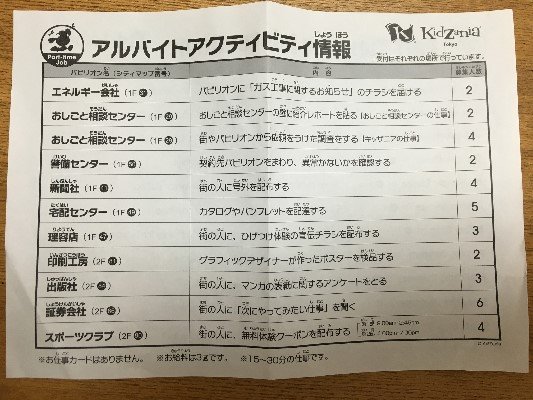 Part-time Job
アルバイトアクティビティ情報
じょうほう
KidZania
Tokyo
受付はそれぞれの場所で行っています。
パビリオン名（シティマップ番号）
内容
募集人数
エネルギー会社（1F
パビリオンに「ガス工事に関するお知らせ」のチラシを届ける
2
おしごと相談センター（1F
おしごと相談センターの壁に紹介レポートを貼る【おしごと相談センターの仕事】
2
おしごと相談センター（1F
街やパビリオンから依頼をうけた調査をする【キッザニアの仕事】
4
警備センター（1F
契約先パビリオンをまわり、異常がないかを確認する
2
新聞社（1F
街の人に号外を配布する
4
宅配センター（1F
カタログやパンフレットを配達する
5
理容店（1F
街の人に、ひげつけ体験の宣伝チラシを配布する
3
印刷工房（2F
グラフィックデザイナーが作ったポスターを検品する
2
出版社（2F
街の人に、マンガの表紙に関するアンケートをとる
3
証券会社（2F
街の人に「次にやってみたい仕事」を聞く
6
スポーツクラブ（2F
街の人に、無料体験クーポンを配布する
4
※お仕事カードはありません。 ※お給料は3キッゾです。 ※15～30分の仕事です。